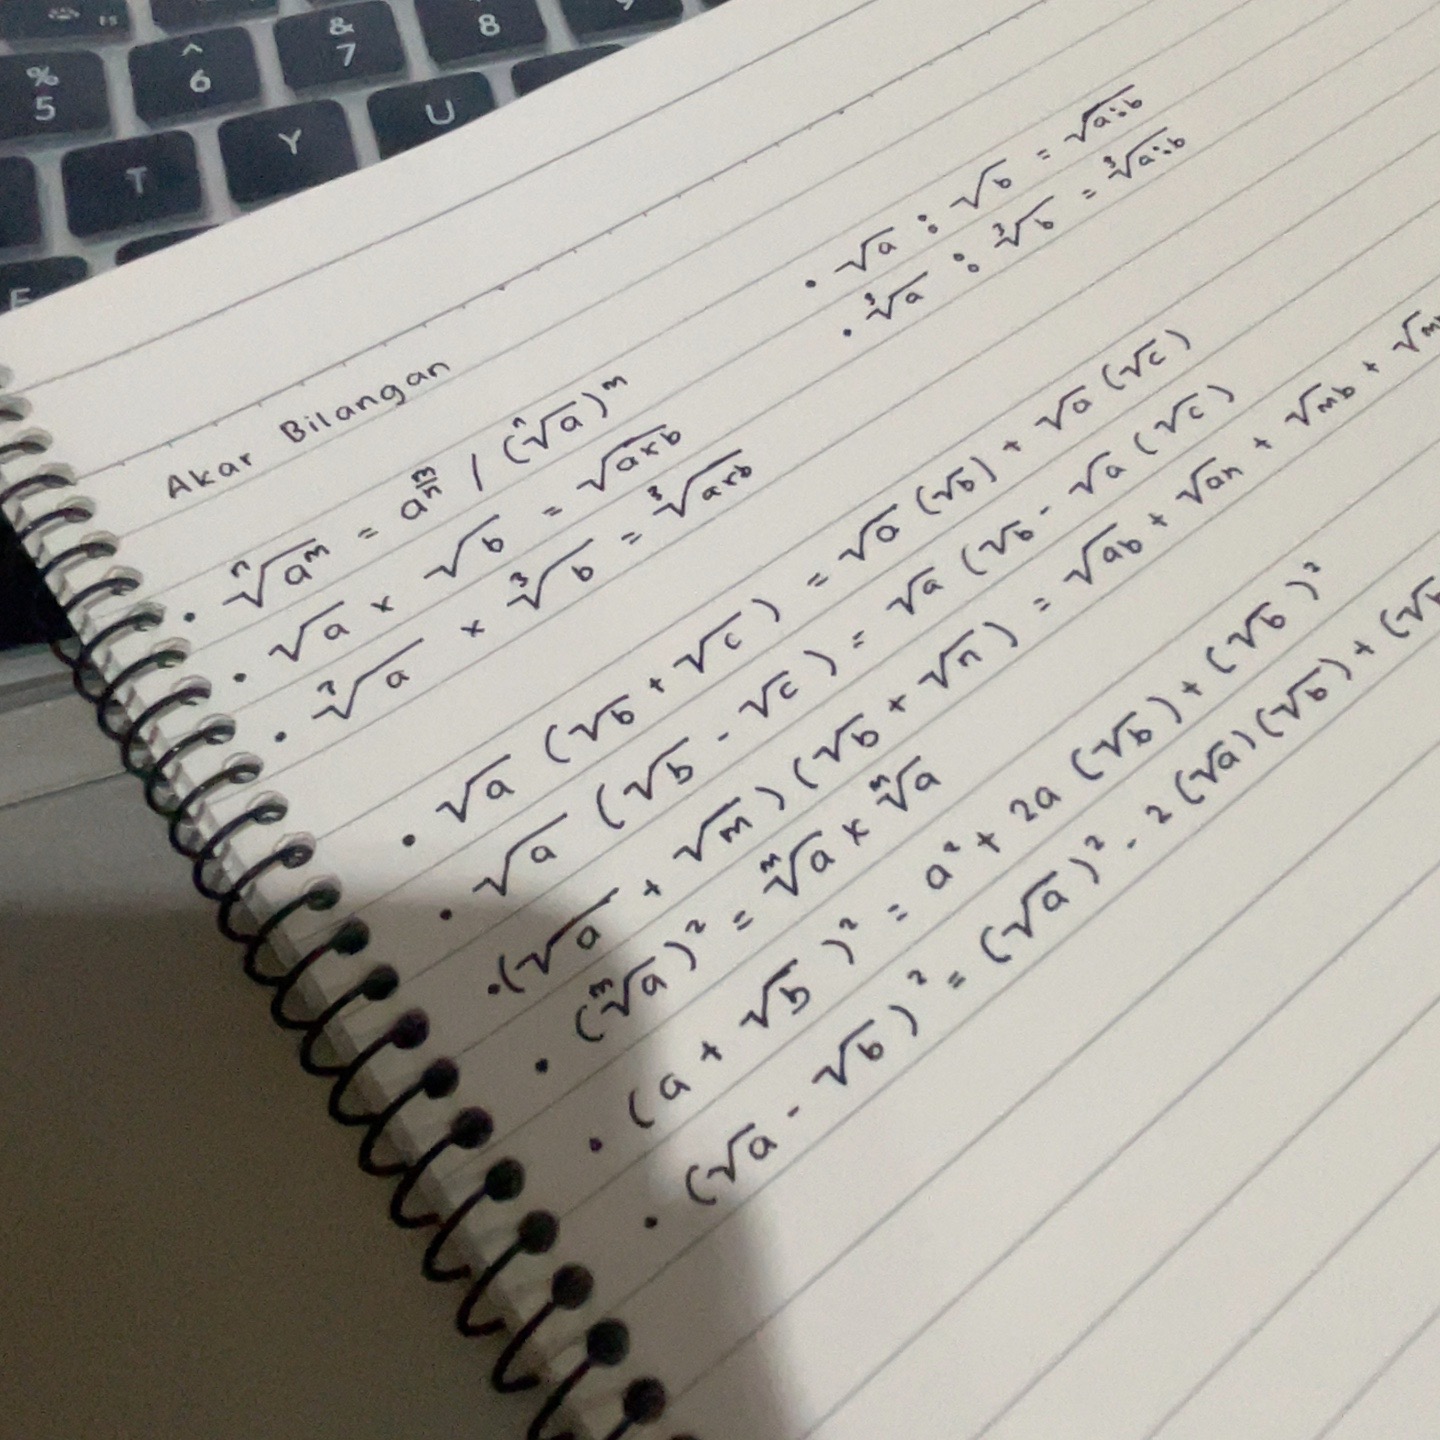 % 5 ^ 6 & 7 8 9
T Y U
F
Akar Bilangan
• ⁿ√aᵐ = a^(m/n) / (ⁿ√a)ᵐ
• √a : √b = √a:b
• √a × √b = √a×b
• ³√a : ³√b = ³√a:b
• ³√a × ³√b = ³√a×b
• √a (√b + √c) = √a (√b) + √a (√c)
• √a (√b - √c) = √a (√b - √a (√c)
• (√a + √m) (√b + √n) = √ab + √an + √mb + √m
• (³√a)² = ³√a × ³√a
• (a + √b)² = a² + 2a (√b) + (√b)²
• (√a - √b)² = (√a)² - 2 (√a) (√b) + (√b